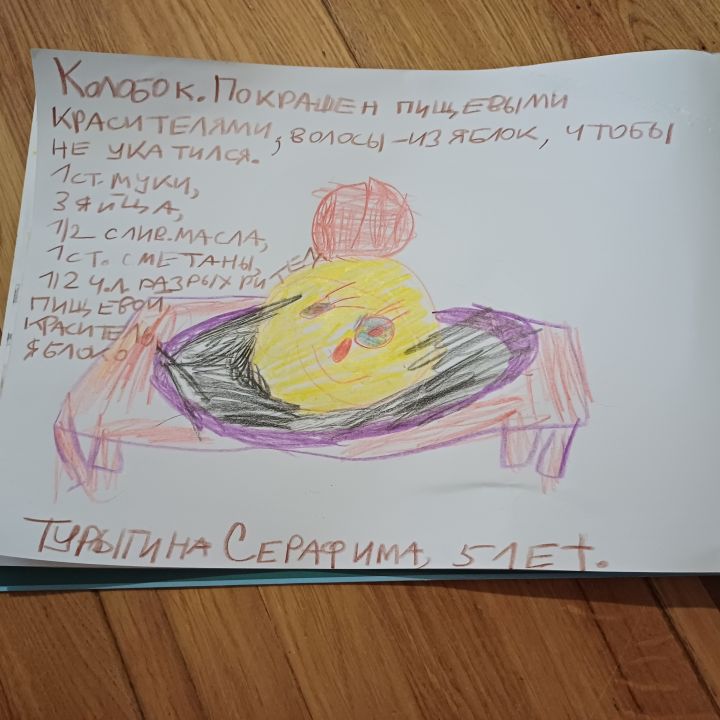 КОЛОБОК. ПОКРАШЕН ПИЩЕВЫМИ
КРАСИТЕЛЯМИ, ВОЛОСЫ-ИЗ ЯБЛОК, ЧТОБЫ
НЕ УКАТИЛСЯ.
1 СТ. МУКИ,
3 ЯЙЦА,
1/2 СЛИВ.МАСЛА,
1 СТ. СМЕТАНЫ,
1/2 Ч.Л. РАЗРЫХРИТЕЛЯ
ПИЩЕВОЙ
КРАСИТЕЛЬ,
ЯБЛОКО
ТУРЫГИНА СЕРАФИМА, 5 ЛЕТ.